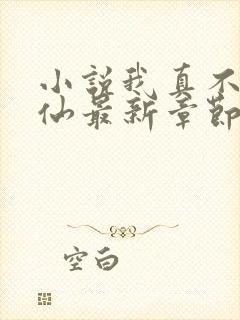 小說我真不
仙最新章節
空白